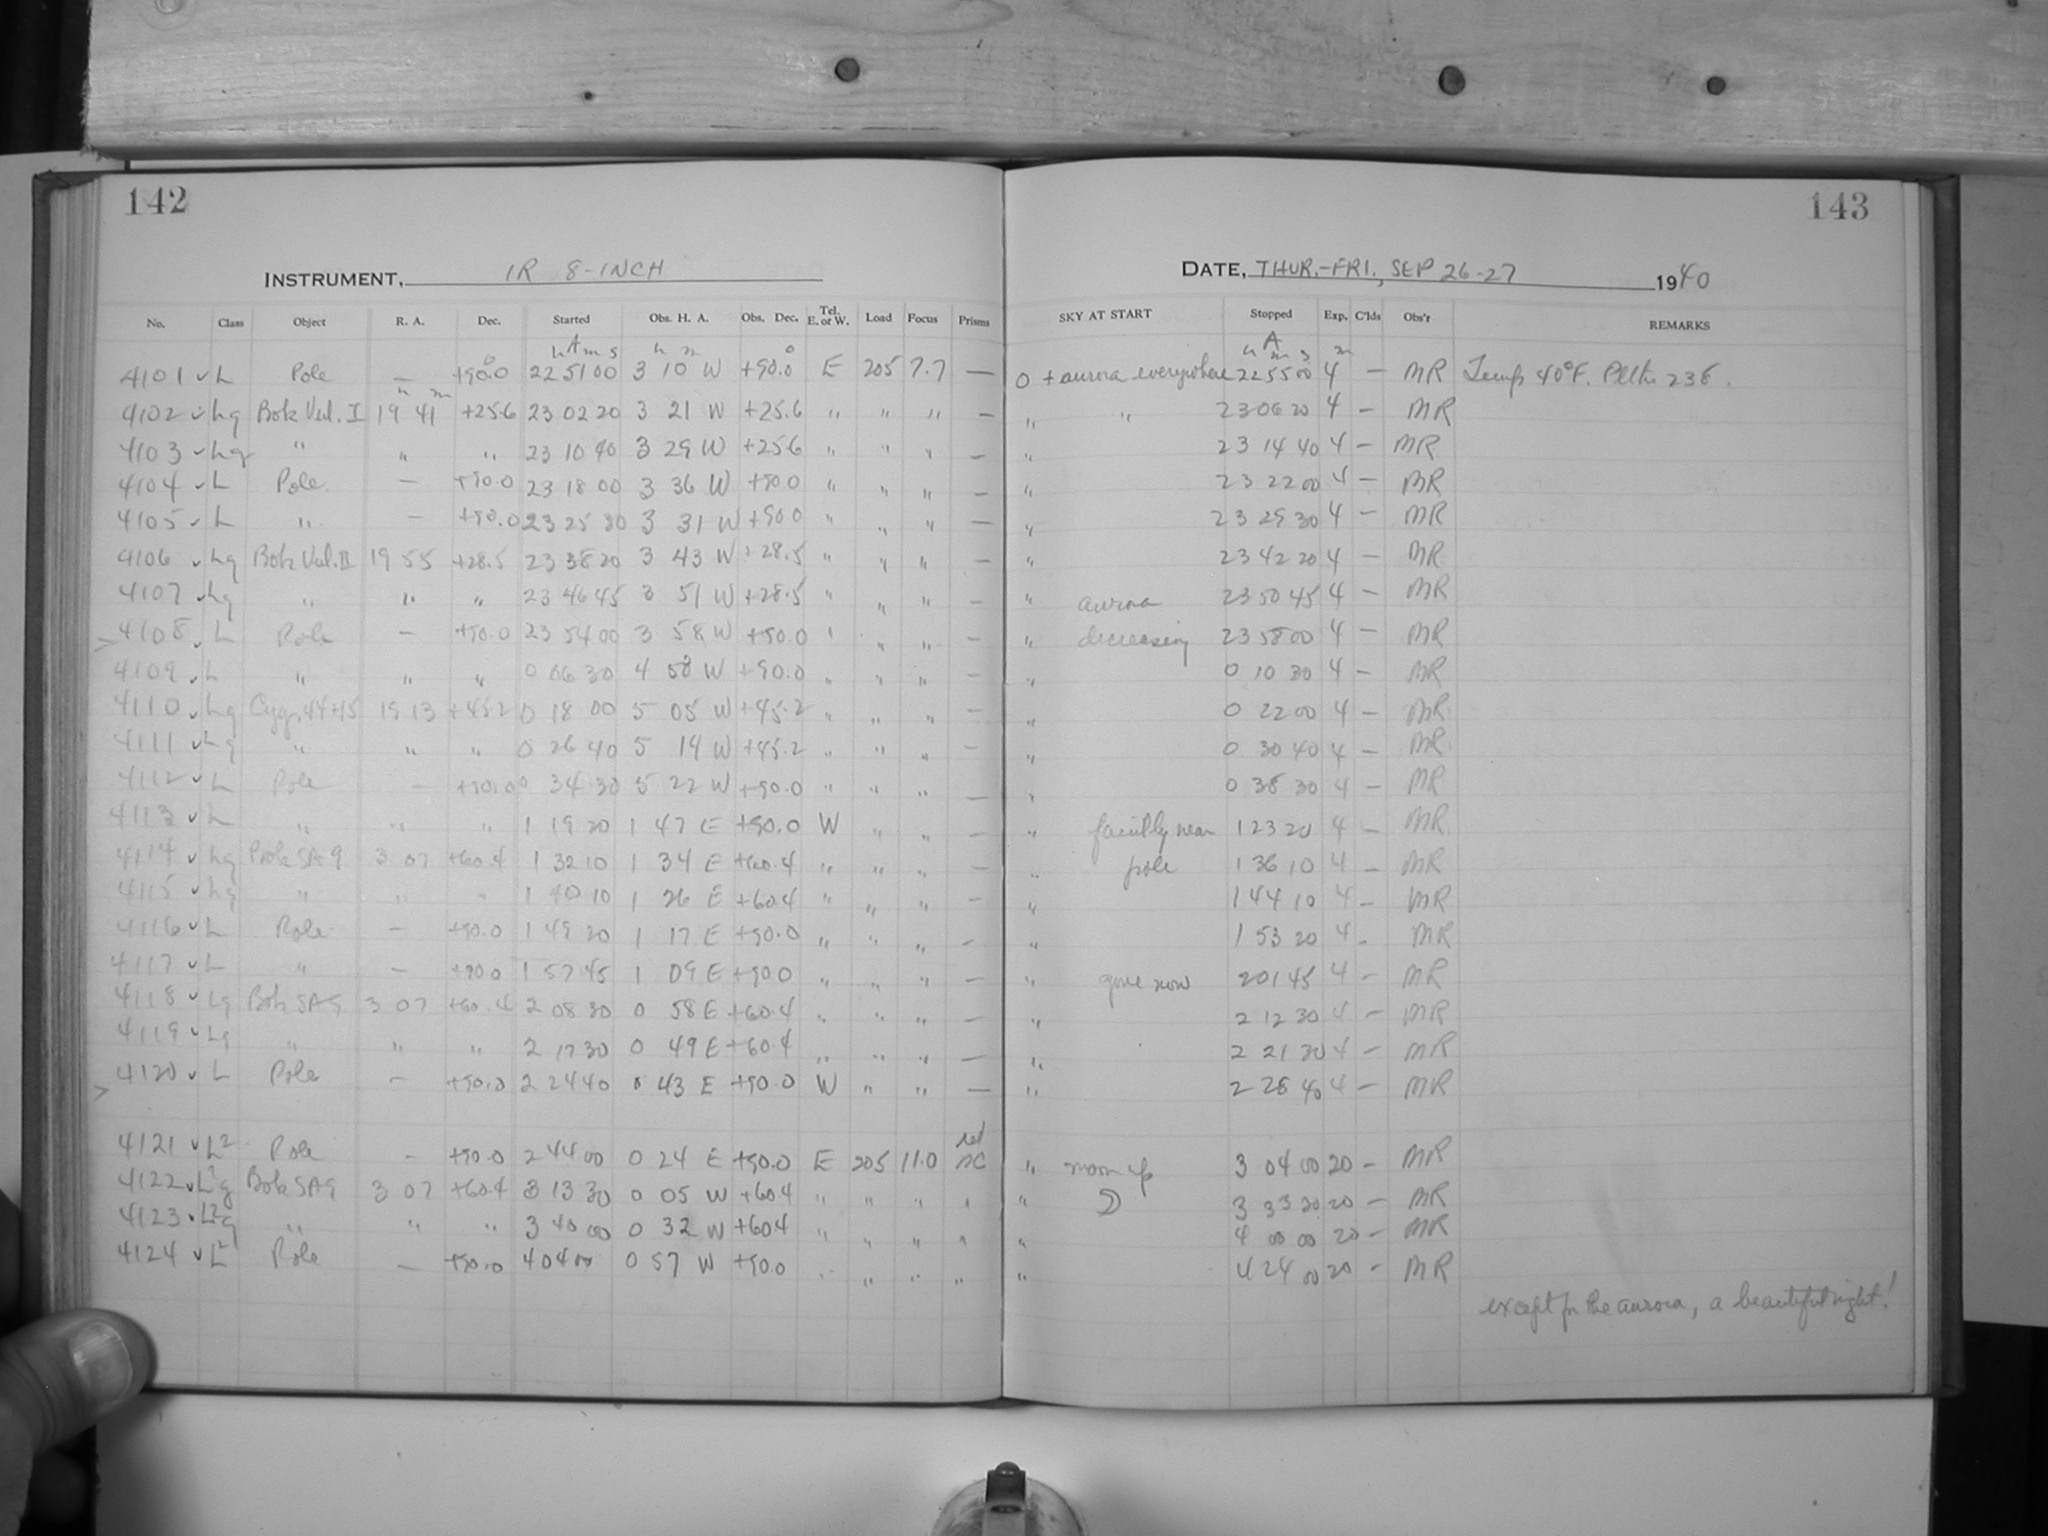 142
INSTRUMENT, IR 8-INCH
No. Class Object R. A. Dec. Started Obs. H. A. Obs. Dec. Tel. E. or W. Load Focus Prisms
h A m s h m
4101 ✓ L Pole — +90.0 22 51 00 3 10 W +90.0 E 205 7.7 —
4102 ✓ Lg Bok Vul. I 19 41 +25.6 23 02 20 3 21 W +25.6 " " " —
4103 ✓ Lg " " " 23 10 40 3 29 W +25.6 " " " —
4104 ✓ L Pole — +90.0 23 18 00 3 36 W +90.0 " " " —
4105 ✓ L " — +90.0 23 25 30 3 31 W +90.0 " " " —
4106 ✓ Lg Bok Vul. II 19 55 +28.5 23 38 20 3 43 W +28.5 " " " —
4107 ✓ Lg " " " 23 46 45 3 51 W +28.5 " " " —
> 4108 ✓ L Pole — +90.0 23 54 00 3 58 W +90.0 " " " —
4109 ✓ L " " " 0 06 30 4 58 W +90.0 " " " —
4110 ✓ Lg Cyg. 44+45 19 13 +45.2 0 18 00 5 05 W +45.2 " " " —
4111 ✓ Lg " " " 0 26 40 5 14 W +45.2 " " " —
4112 ✓ L Pole — +90.0 0 34 30 5 22 W +90.0 " " " —
4113 ✓ L " " " 1 19 20 1 47 E +90.0 W " " —
4114 ✓ Lg Bok SA 9 3 07 +60.4 1 32 10 1 34 E +60.4 " " " —
4115 ✓ Lg " " " 1 40 10 1 26 E +60.4 " " " —
4116 ✓ L Pole — +90.0 1 49 20 1 17 E +90.0 " " " —
4117 ✓ L " — +90.0 1 57 45 1 09 E +90.0 " " " —
4118 ✓ Lg Bok SA 9 3 07 +60.4 2 08 30 0 58 E +60.4 " " " —
4119 ✓ Lg " " " 2 17 30 0 49 E +60.4 " " " —
> 4120 ✓ L Pole — +90.0 2 24 40 0 43 E +90.0 W " " —
4121 ✓ L² Pole — +90.0 2 44 00 0 24 E +90.0 E 205 11.0 red
4122 ✓ L²g Bok SA 9 3 07 +60.4 3 13 30 0 05 W +60.4 " " " "
4123 ✓ L²g " " " 3 40 00 0 32 W +60.4 " " " "
4124 ✓ L² Pole — +90.0 4 04 00 0 57 W +90.0 " " " "
143
DATE, THUR.-FRI, SEP 26-27 1940
SKY AT START Stopped Exp. C'lds Obs'r REMARKS
h A m s m
0 + aurora everywhere 22 55 00 4 — MR Temp 40°F. 238.
" " 23 06 20 4 — MR
" 23 14 40 4 — MR
" 23 22 00 4 — MR
" 23 29 30 4 — MR
" 23 42 20 4 — MR
" aurora 23 50 45 4 — MR
" decreasing 23 58 00 4 — MR
" 0 10 30 4 — MR
" 0 22 00 4 — MR
" 0 30 40 4 — MR
" 0 38 30 4 — MR
" faintly near 1 23 20 4 — MR
" pole 1 36 10 4 — MR
" 1 44 10 4 — MR
" 1 53 20 4 — MR
" gone now 2 01 45 4 — MR
" 2 12 30 4 — MR
" 2 21 30 4 — MR
" 2 28 40 4 — MR
" moon up 3 04 00 20 — MR
" 3 33 30 20 — MR
4 00 00 20 — MR
" 4 24 00 20 — MR
except for the aurora, a beautiful night!